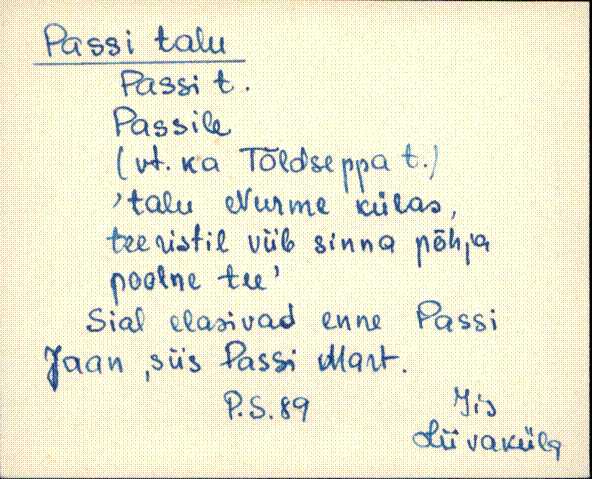 Passi talu
Passi t.
Passile
(vt. ka Tõldseppa t.)
'talu Nurme külas,
teeristil viib sinna põhja
poolne tee'
Sial elasivad enne Passi
Jaan, siis Passi Mart.
P.S. 89
Jis
Liivaküla